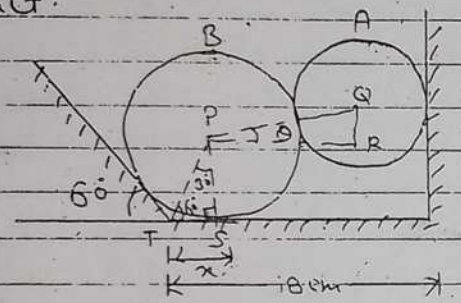 B
A
P
Q
θ
R
60°
30°
T
S
x
18cm